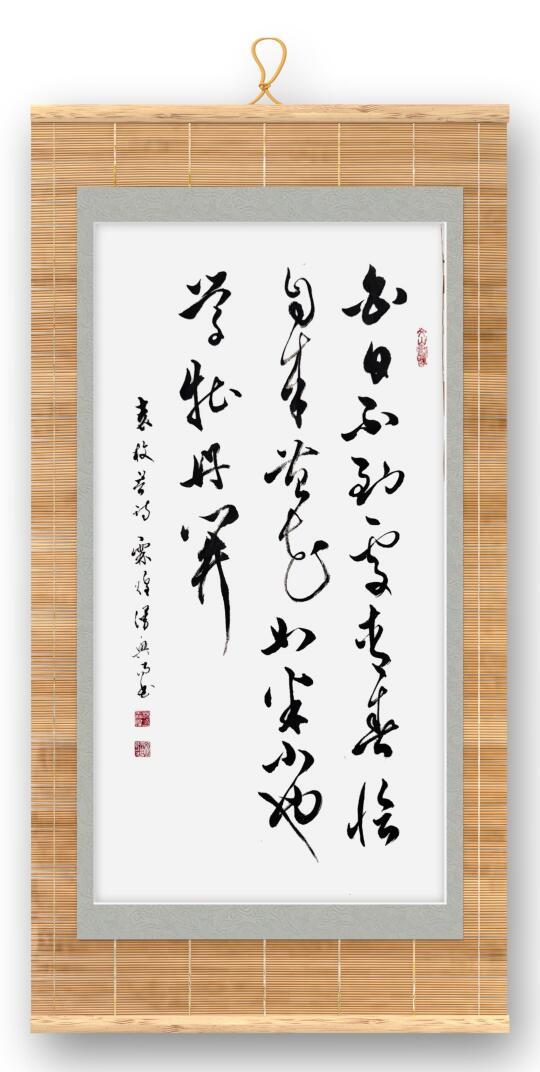 白日不到处青春恰
自来苔花如米小也
学牡丹开
袁枚苔诗 霖煌